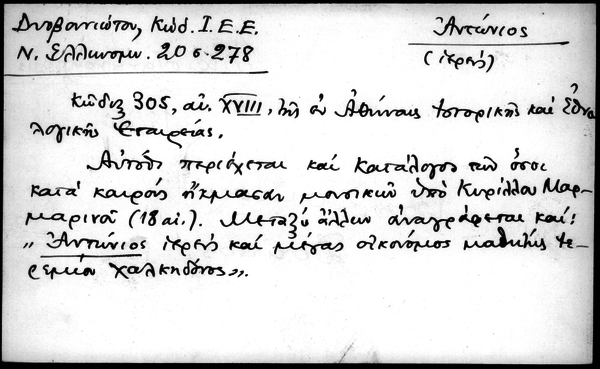 Δυοβουνιώτου, Κώδ. Ι.Ε.Ε.
Ν. Ἑλληνομν. 20 σ. 278
Ἀντώνιος
(ἱερεύς)
Κῶδιξ 305, αἰ. XVIII, τῆς ἐν Ἀθήναις Ἱστορικῆς καὶ Ἐθνο-
λογικῆς Ἑταιρείας.
Αὐτόθι περιέχεται καὶ κατάλογος τῶν ὅσοι
κατὰ καιροὺς ἤκμασαν μουσικῶν ὑπὸ Κυρίλλου Μαρ-
μαρινοῦ (18 αἰ.). Μεταξὺ ἄλλων ἀναγράφεται καί:
„Ἀντώνιος ἱερεὺς καὶ μέγας οἰκονόμος μαθητὴς Ἱε-
ρεμίου Χαλκηδόνος".